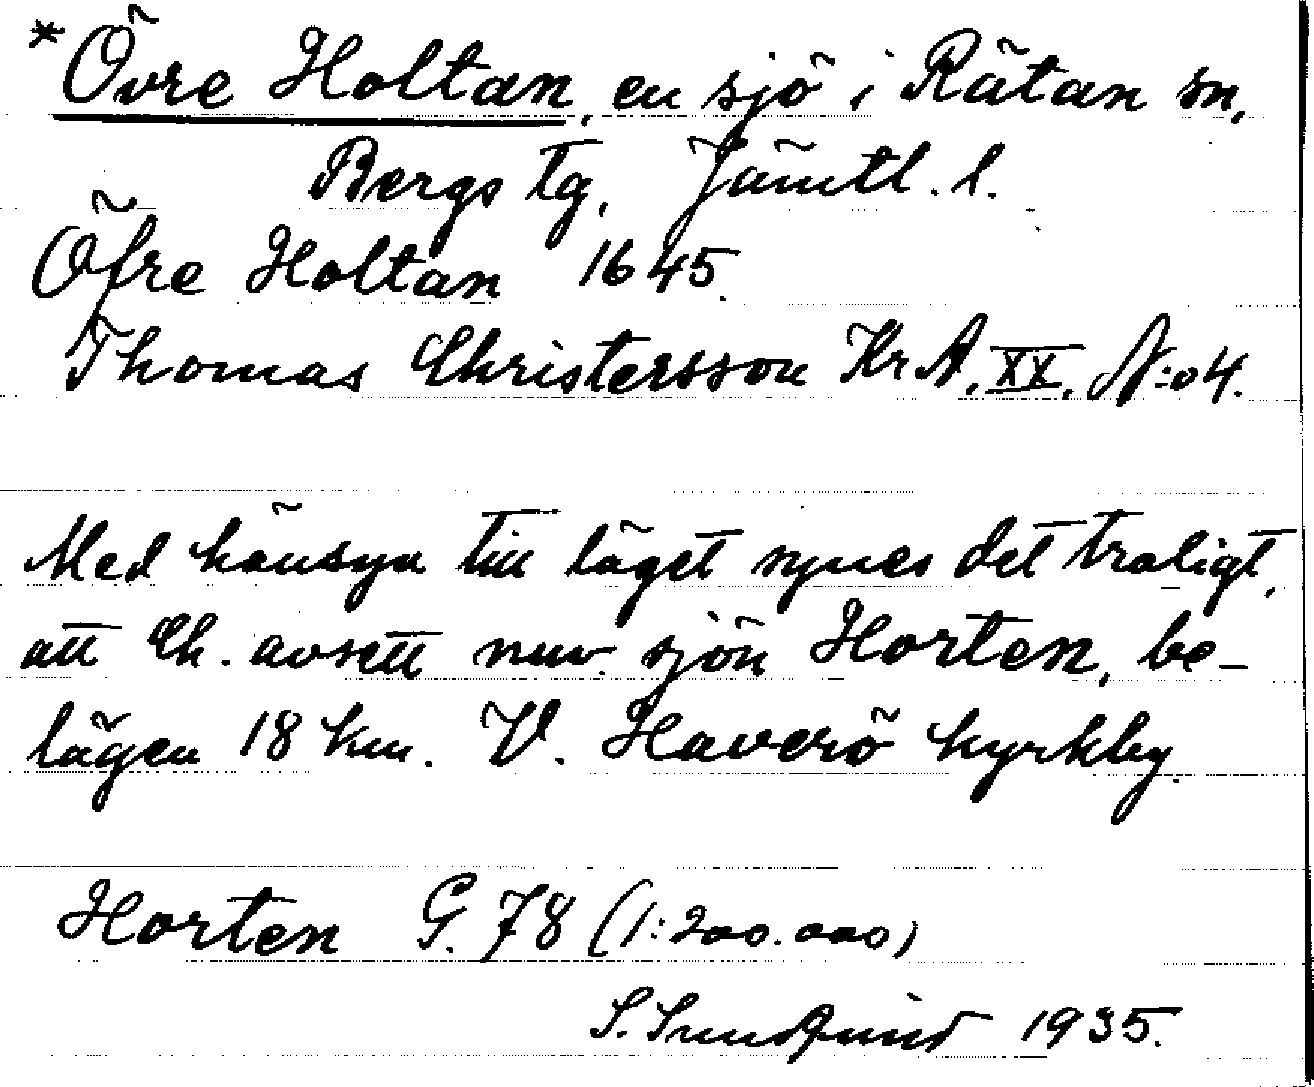 *Övre Holtan, en sjö i Rätan sn,
Bergs tg, Jämtl. l.
Öfre Holtan 1645.
Thomas Christersson KrA, XX, N:o 4.
Med hänsyn till läget synes det troligt,
att Ch. avsett nuv. sjön Horten, be-
lägen 18 km. V. Haverö kyrkby.
Horten G. 78 (1:200.000)
S. Sundquist 1935.